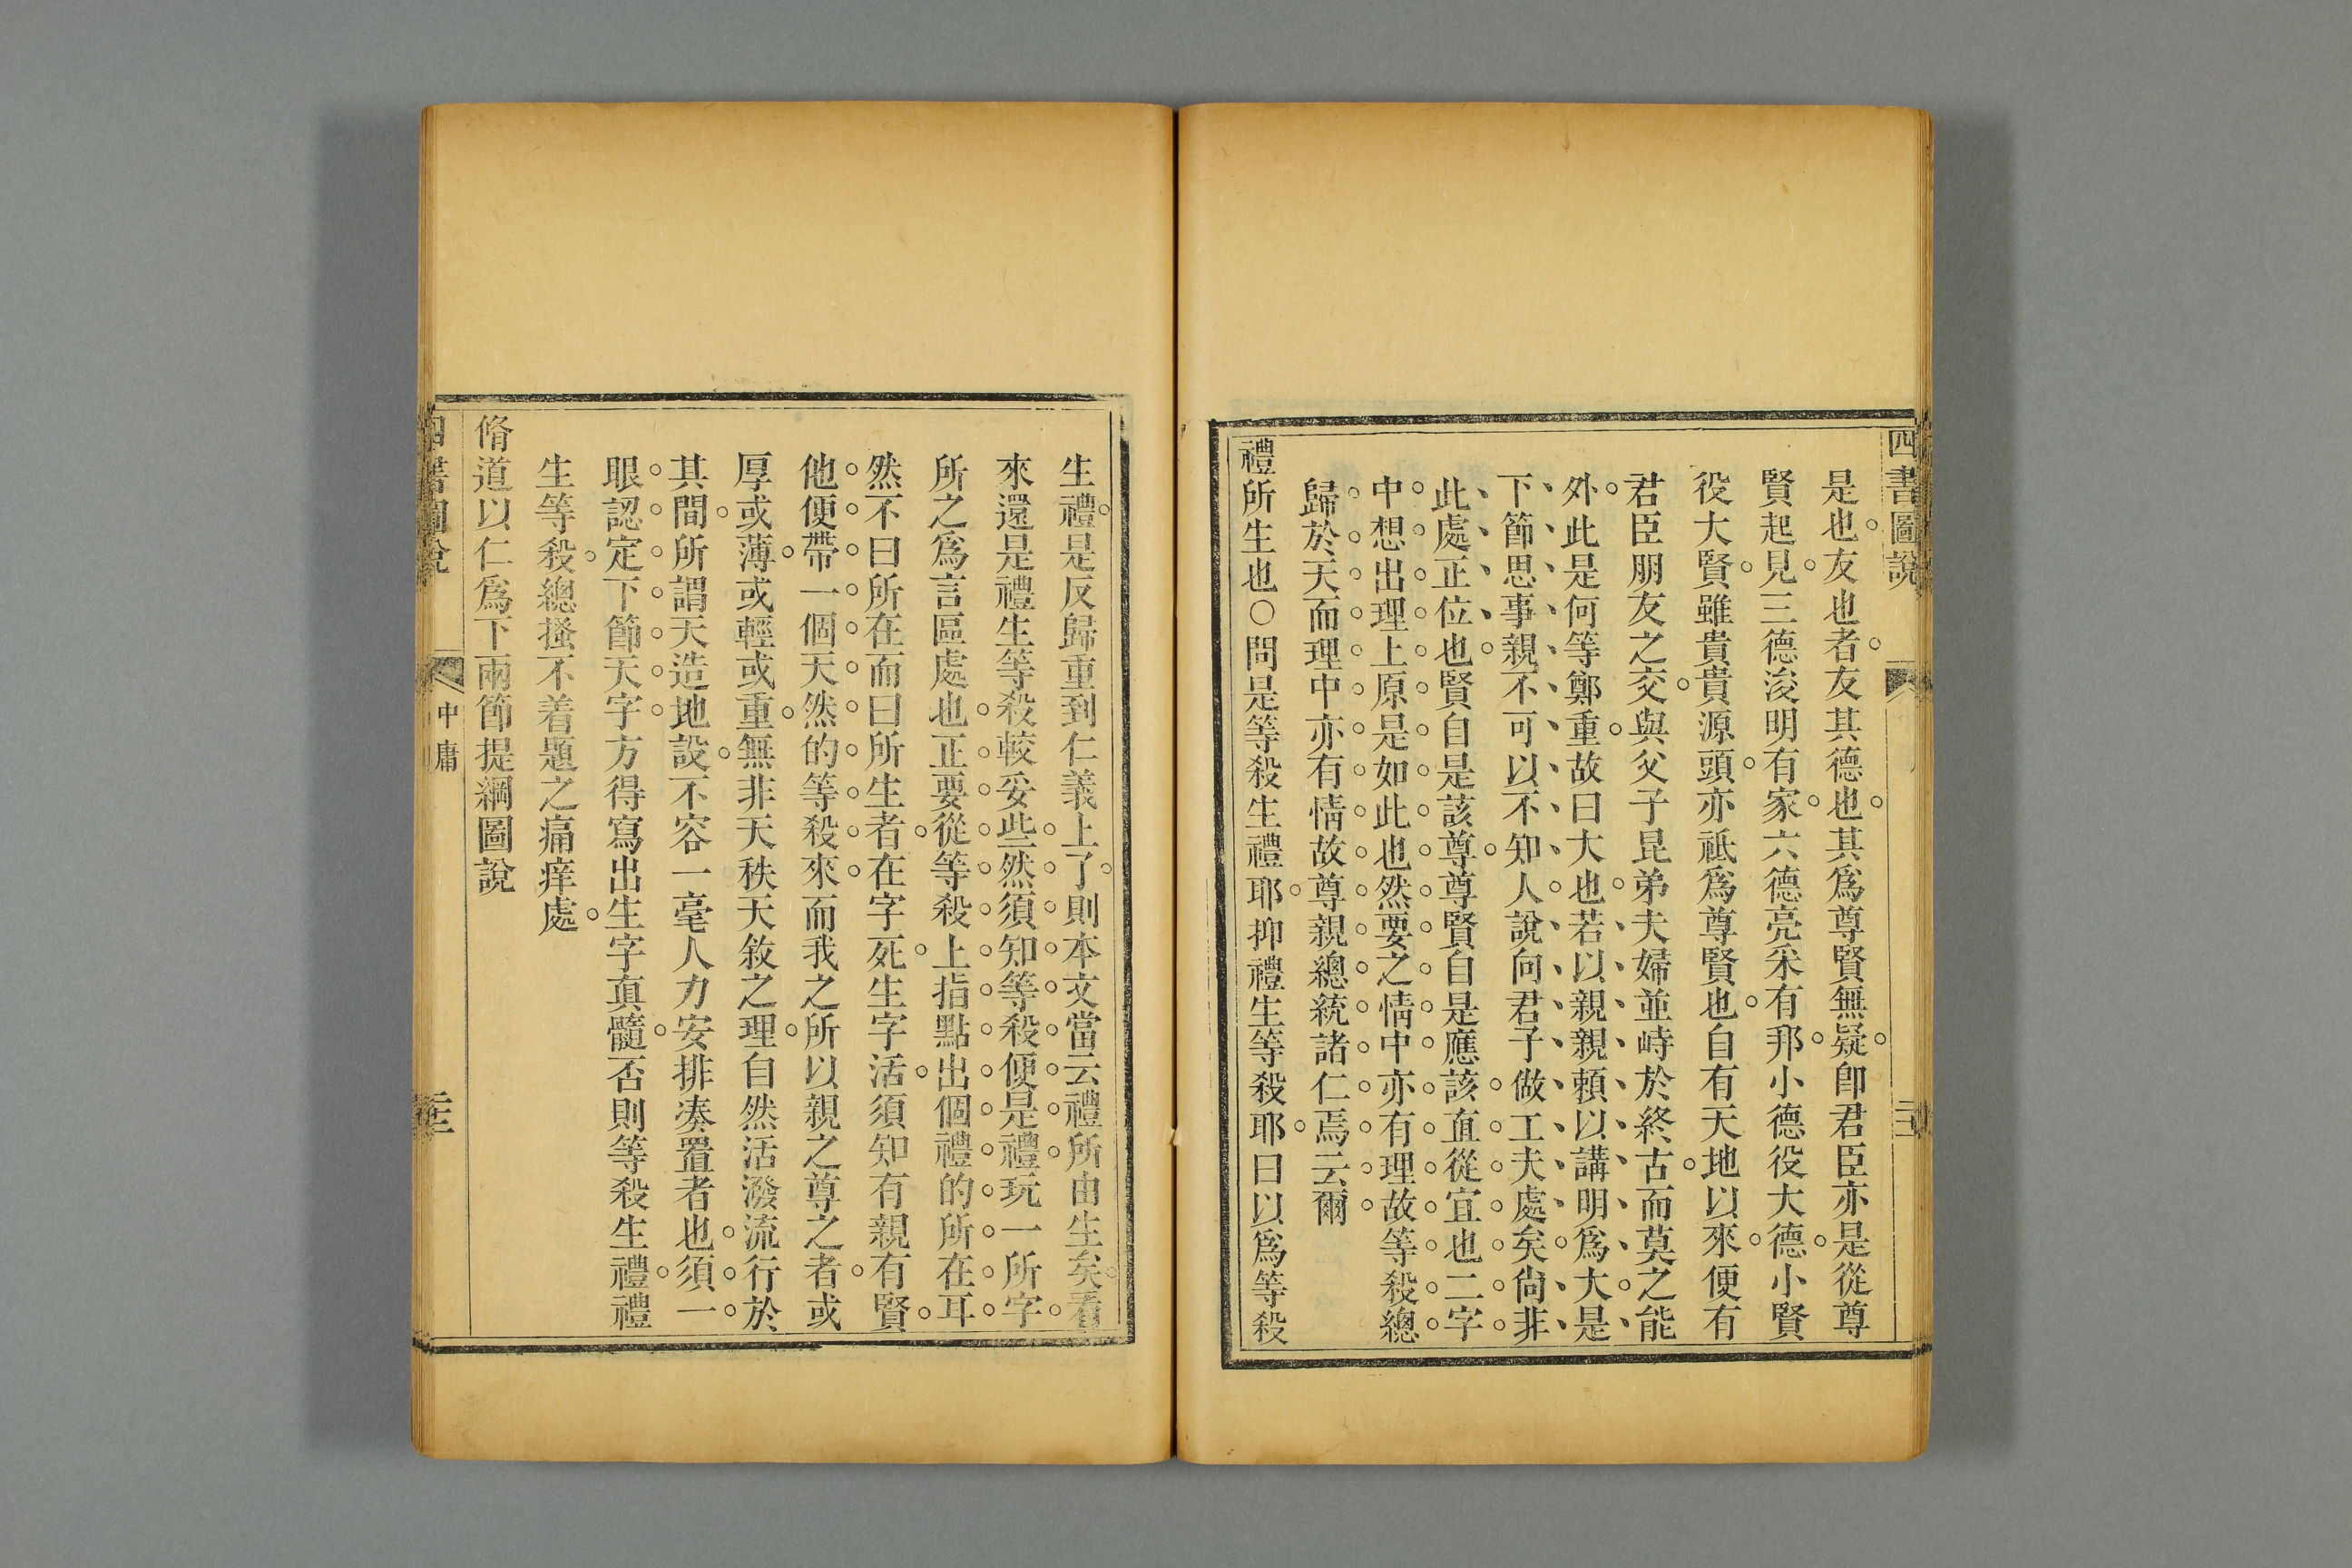 四書圖說
是也友也者友其德也其爲尊賢無疑卽君臣亦是從尊
賢起見三德浚明有家六德亮采有邦小德役大德小賢
役大賢雖貴貴源頭亦祇爲尊賢也自有天地以來便有
君臣朋友之交與父子昆弟夫婦並峙於終古而莫之能
外此是何等鄭重故曰大也若以親親頼以講明爲大是
下節思事親不可以不知人說向君子做工夫處矣尙非
此處正位也賢自是該尊尊賢自是應該直從宜也二字
中想出理上原是如此也然要之情中亦有理故等殺總
歸於天而理中亦有情故尊親總統諸仁焉云爾
禮所生也○問是等殺生禮耶抑禮生等殺耶曰以爲等殺
生禮是反歸重到仁義上了則本文當云禮所由生矣看
來還是禮生等殺較妥些然須知等殺便是禮玩一所字
所之爲言區處也正要從等殺上指點出個禮的所在耳
然不曰所在而曰所生者在字死生字活須知有親有賢
他便帶一個天然的等殺來而我之所以親之尊之者或
厚或薄或輕或重無非天秩天敘之理自然活潑流行於
其間所謂天造地設不容一毫人力安排湊置者也須一
眼認定下節天字方得寫出生字眞髓否則等殺生禮禮
生等殺總搔不着題之痛痒處
脩道以仁爲下兩節提綱圖說
四書圖說
中庸